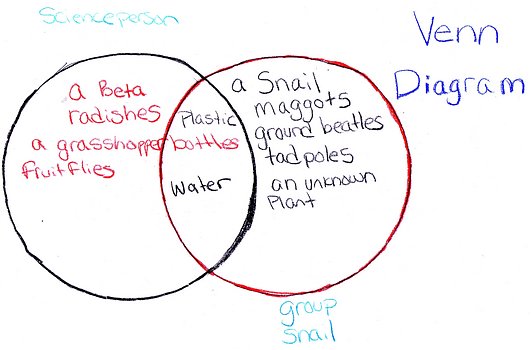 Scienceperson
Venn
Diagram
a Beta
radishes
a grasshopper
fruitflies
Plastic
bottles
Water
a Snail
maggots
ground beatles
tadpoles
an unknown
Plant
group
Snail